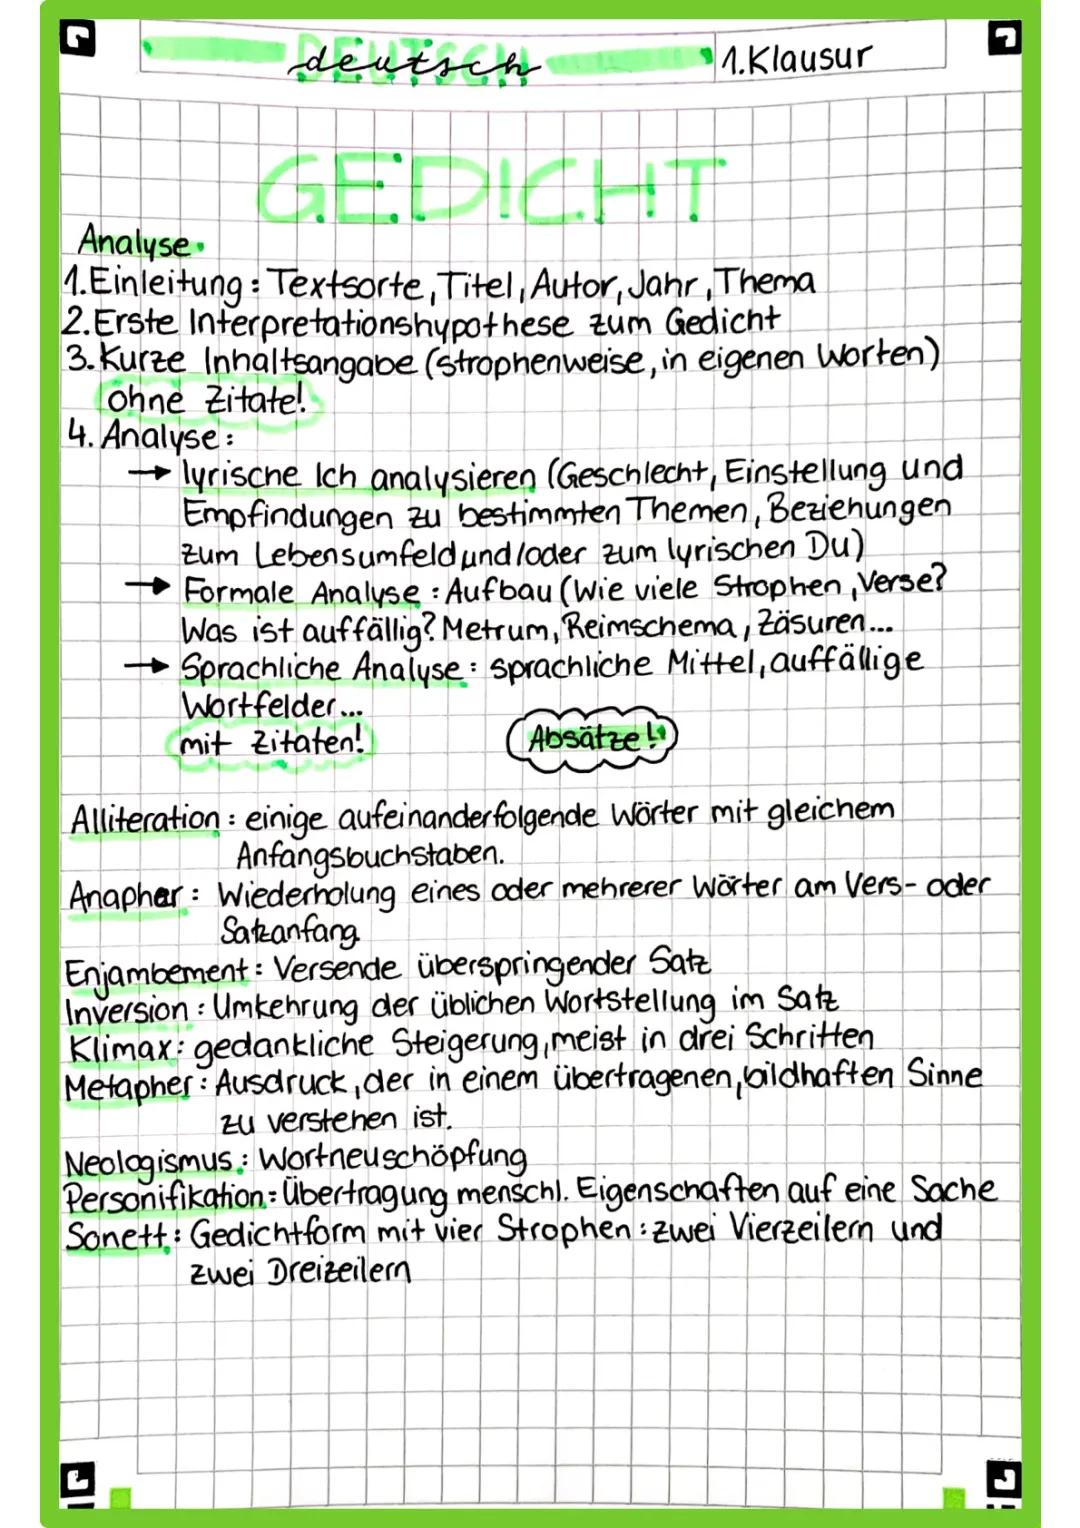 deutsch 1.Klausur
GEDICHT
Analyse
1.Einleitung: Textsorte, Titel, Autor, Jahr, Thema
2.Erste Interpretationshypothese zum Gedicht
3.Kurze Inhaltsangabe (strophenweise, in eigenen Worten)
ohne Zitate!
4. Analyse:
→ lyrische Ich analysieren (Geschlecht, Einstellung und
Empfindungen zu bestimmten Themen, Beziehungen
zum Lebensumfeld und/oder zum lyrischen Du)
→ Formale Analyse: Aufbau (Wie viele Strophen, Verse?
Was ist auffällig? Metrum, Reimschema, Zäsuren...
→ Sprachliche Analyse: sprachliche Mittel, auffällige
Wortfelder...
mit Zitaten! Absätze!
Alliteration: einige aufeinanderfolgende Wörter mit gleichem
Anfangsbuchstaben.
Anapher: Wiederholung eines oder mehrerer Wörter am Vers- oder
Satzanfang
Enjambement: Versende überspringender Satz
Inversion: Umkehrung der üblichen Wortstellung im Satz
Klimax: gedankliche Steigerung, meist in drei Schritten
Metapher: Ausdruck, der in einem übertragenen, bildhaften Sinne
zu verstehen ist.
Neologismus: Wortneuschöpfung
Personifikation: Übertragung menschl. Eigenschaften auf eine Sache
Sonett: Gedichtform mit vier Strophen: zwei Vierzeilern und
zwei Dreizeilern